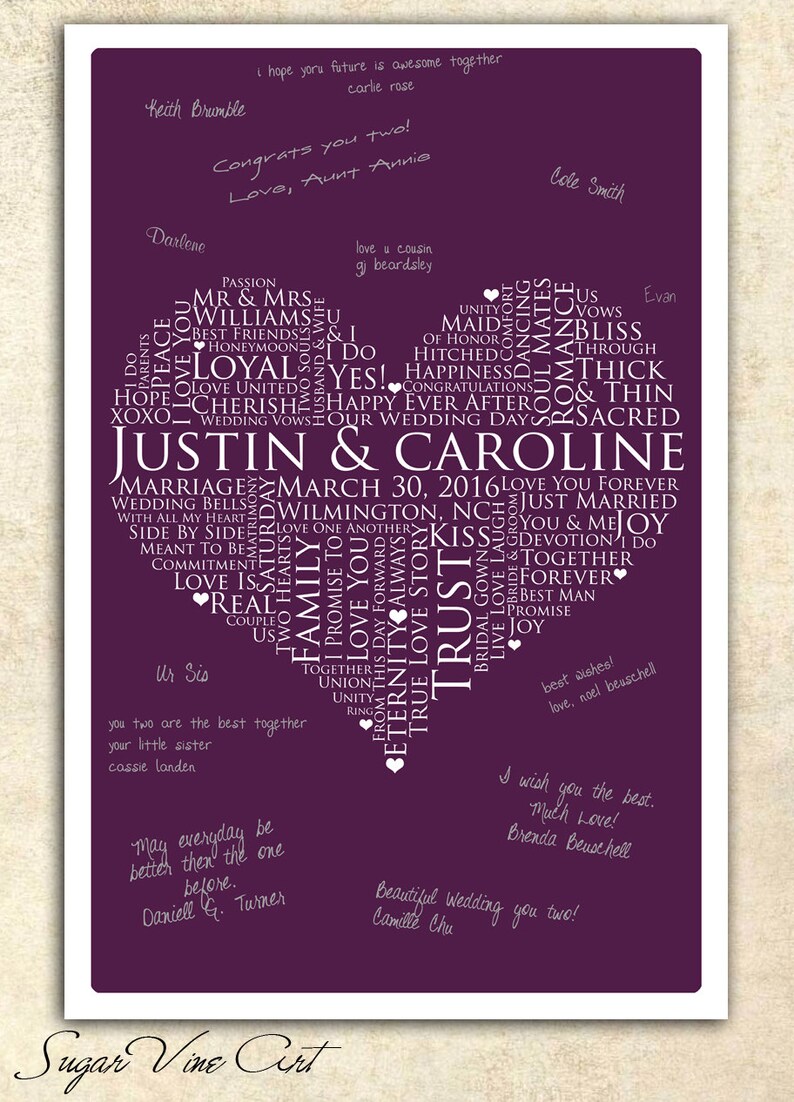 i hope yoru future is awesome together
carlie rose
Keith Brumble
Congrats you two!
Love, Aunt Annie
Cole Smith
Darlene
love u cousin
gj beardsley
Evan
Passion
Mr & Mrs
Williams
Best Friends
Honeymoon
Loyal
Love United
Cherish
Wedding Vows
I Do
Parents
Peace
I Love You
Hope
XOXO
Two Souls
Husband & Wife
U
& I
I Do
Yes!
Happy Ever After
Our Wedding Day
Unity
Maid
Of Honor
Hitched
Happiness
Congratulations
Comfort
Dancing
Soul Mates
Romance
Us
Vows
Bliss
Through
Thick
& Thin
Sacred
Justin & Caroline
Marriage
Wedding Bells
With All My Heart
Side By Side
Meant To Be
Commitment
Love Is
Real
Couple
Us
Matrimony
Saturday
Two Hearts
March 30, 2016
Wilmington, NC
Love One Another
Kiss
Family
I Promise To
Love You
From This Day Forward
Always
Eternity
True Love Story
Trust
Bridal Gown
Live Love Laugh
Bride & Groom
Together
Union
Unity
Ring
Love You Forever
Just Married
You & Me
Joy
Devotion
I Do
Together
Forever
Best Man
Promise
Joy
Ur Sis
best wishes!
love, noel beuschell
you two are the best together
your little sister
cassie landen
I wish you the best.
Much Love!
Brenda Beuschell
May everyday be
better then the one
before.
Daniell G. Turner
Beautiful Wedding you two!
Camille Chu
Sugar Vine Art